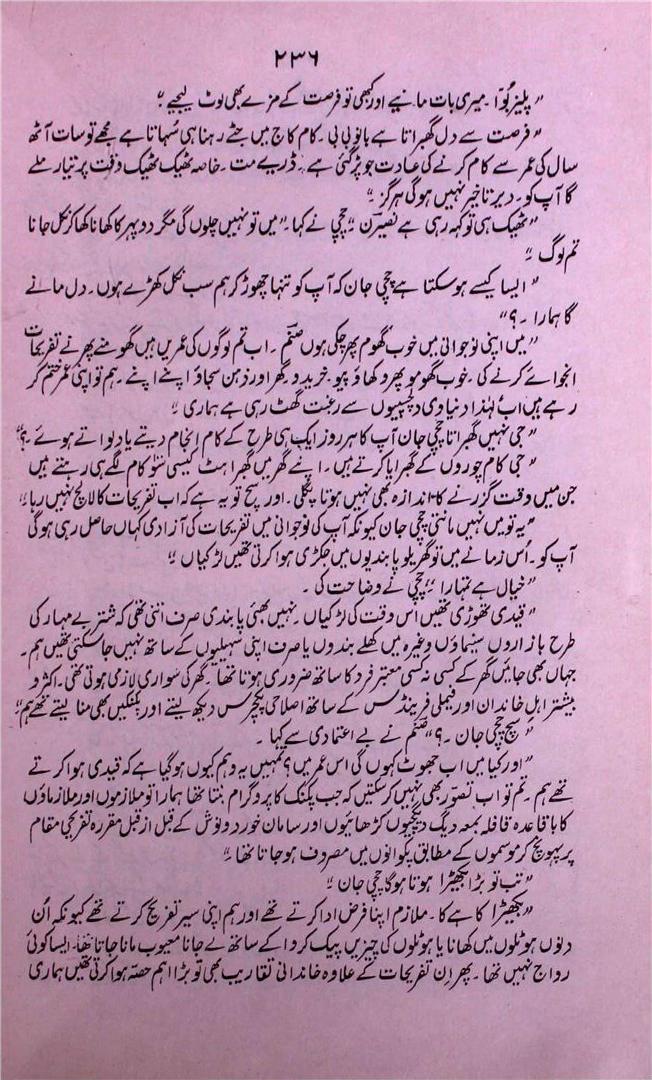 ۲۳۶
"پلیز بُوّا۔ میری بات مانیے اور کبھی تو فرصت کے مزے بھی لوٹ لیجیے۔"
"فرصت سے دل گھبراتا ہے بانو بی بی۔ کام کاج میں جٹے رہنا ہی سُہاتا ہے مجھے تو سات آٹھ
سال کی عمر سے کام کرنے کی عادت جو پڑ گئی ہے۔ ڈریے مت۔ خاصہ ٹھیک ٹھیک وقت پر تیار ملے
گا آپ کو۔ دیر تاخیر نہیں ہوگی ہرگز۔"
"ٹھیک ہی تو کہہ رہی ہے نصیرن۔" چچی نے کہا۔ "میں تو نہیں چلوں گی مگر دوپہر کا کھانا کھا کر نکل جانا
تم لوگ۔"
"ایسا کیسے ہوسکتا ہے چچی جان کہ آپ کو تنہا چھوڑ کر ہم سب نکل کھڑے ہوں۔ دل مانے
گا ہمارا۔؟"
"میں اپنی نوجوانی میں خوب گھوم پھر چکی ہوں صنم۔ اب تم لوگوں کی عمریں ہیں گھومنے پھرنے تفریحات
انجوائے کرنے کی۔ خوب گھومو پھرو کھاؤ پیو۔ خریدو دیکھو اور ذہن سجاؤ اپنے اپنے۔ ہم تو اپنی عمر ختم کر
رہے ہیں اب لہٰذا دنیاوی دلچسپیوں سے رغبت گھٹ رہی ہے ہماری۔"
"جی نہیں گھبراتا چچی جان آپ کا ہر روز ایک ہی طرح کے کام انجام دیتے یا دلواتے ہوئے۔؟"
"جی کام چوروں کے گھبرایا کرتے ہیں۔ اپنے گھر میں گھبراہٹ کیسی سنٹو کام لگے ہی رہتے ہیں
جن میں وقت گزرنے کا اندازہ بھی نہیں ہوتا پگلی۔ اور سچ تو یہ ہے کہ اب تفریحات کا لالچ نہیں رہا۔"
"یہ تو میں نہیں مانتی چچی جان کیونکہ آپ کی نوجوانی میں تفریحات کی آزادی کہاں حاصل رہی ہوگی
آپ کو۔ اُس زمانے میں تو گھریلو پابندیوں میں جکڑی ہوا کرتی تھیں لڑکیاں۔"
"خیال ہے تمہارا۔" چچی نے وضاحت کی۔
"قیدی تھوڑی تھیں اس وقت کی لڑکیاں۔ نہیں بھئی پابندی صرف اتنی تھی کہ شتر بے مہار کی
طرح بازاروں سینماؤں وغیرہ میں کھلے بندوں یا صرف اپنی سہیلیوں کے ساتھ نہیں جاسکتی تھیں ہم۔
جہاں بھی جائیں گھر کے کسی نہ کسی معتبر فرد کا ساتھ ضروری ہوتا تھا۔ گھر کی سواری لازمی ہوتی تھی۔ اکثر و
بیشتر اہلِ خاندان اور فیملی فرینڈس کے ساتھ اصلاحی پکچرس دیکھ لیتے اور پکنکیں بھی منا لیتے تھے ہم۔"
"سچ چچی جان۔؟" صنم نے بے اعتمادی سے کہا۔
"اور کیا میں اب جھوٹ کہوں گی اس عمر میں؟ تمہیں یہ وہم کیوں ہوگیا ہے کہ قیدی ہوا کرتے
تھے ہم۔ تم تو اب تصوّر بھی نہیں کرسکتیں کہ جب پکنک کا پروگرام بنتا تھا ہمارا تو ملازموں اور ملازماؤں
کا باقاعدہ قافلہ بمعہ دیگ دیگچیوں کڑھائیوں اور سامانِ خورد و نوش کے قبل از قبل مقررہ تفریحی مقام
پر پہونچ کر موسموں کے مطابق پکوانوں میں مصروف ہو جاتا تھا۔"
"تب تو بڑا بکھیڑا ہوتا ہوگا چچی جان۔"
"بکھیڑا کاہے کا۔ ملازم اپنا فرض ادا کرتے تھے اور ہم اپنی سیر تفریح کرتے تھے کیونکہ اُن
دنوں ہوٹلوں میں کھانا یا ہوٹلوں کی چیزیں پیک کروا کے ساتھ لے جانا معیوب مانا جاتا تھا۔ ایسا کوئی
رواج نہیں تھا۔ پھر اِن تفریحات کے علاوہ خاندانی تقاریب بھی تو بڑا اہم حصّہ ہوا کرتی تھیں ہماری